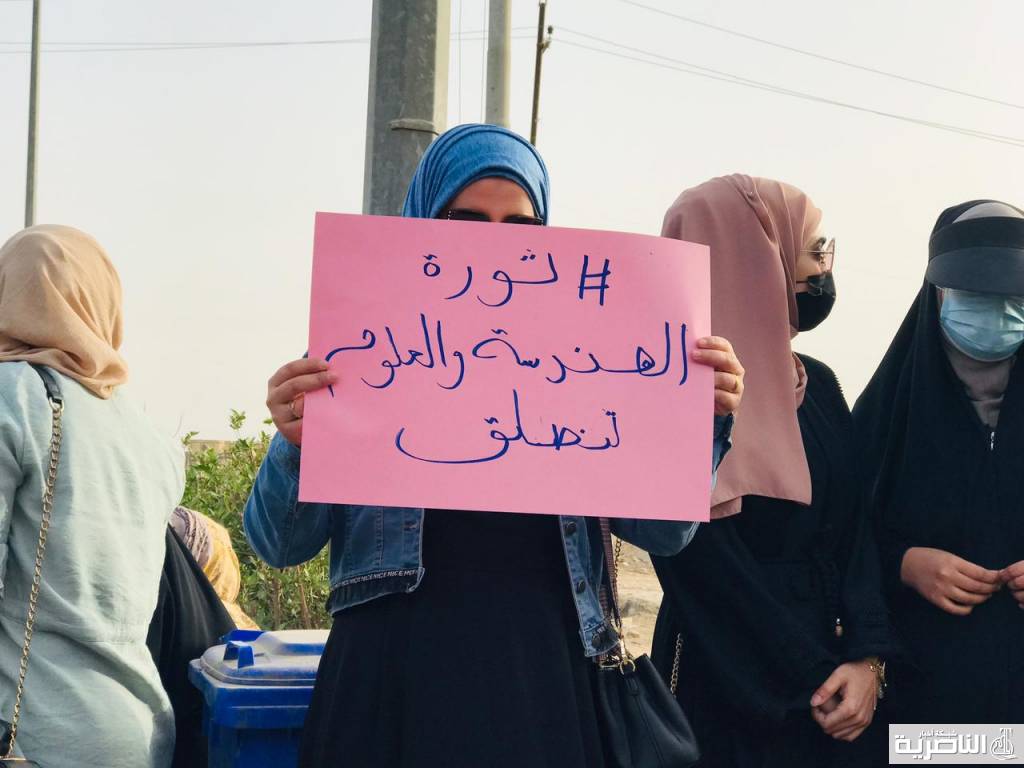 # ثورة
الهندسة والعلوم
تنطلق
شبكة أخبار
الناصرية